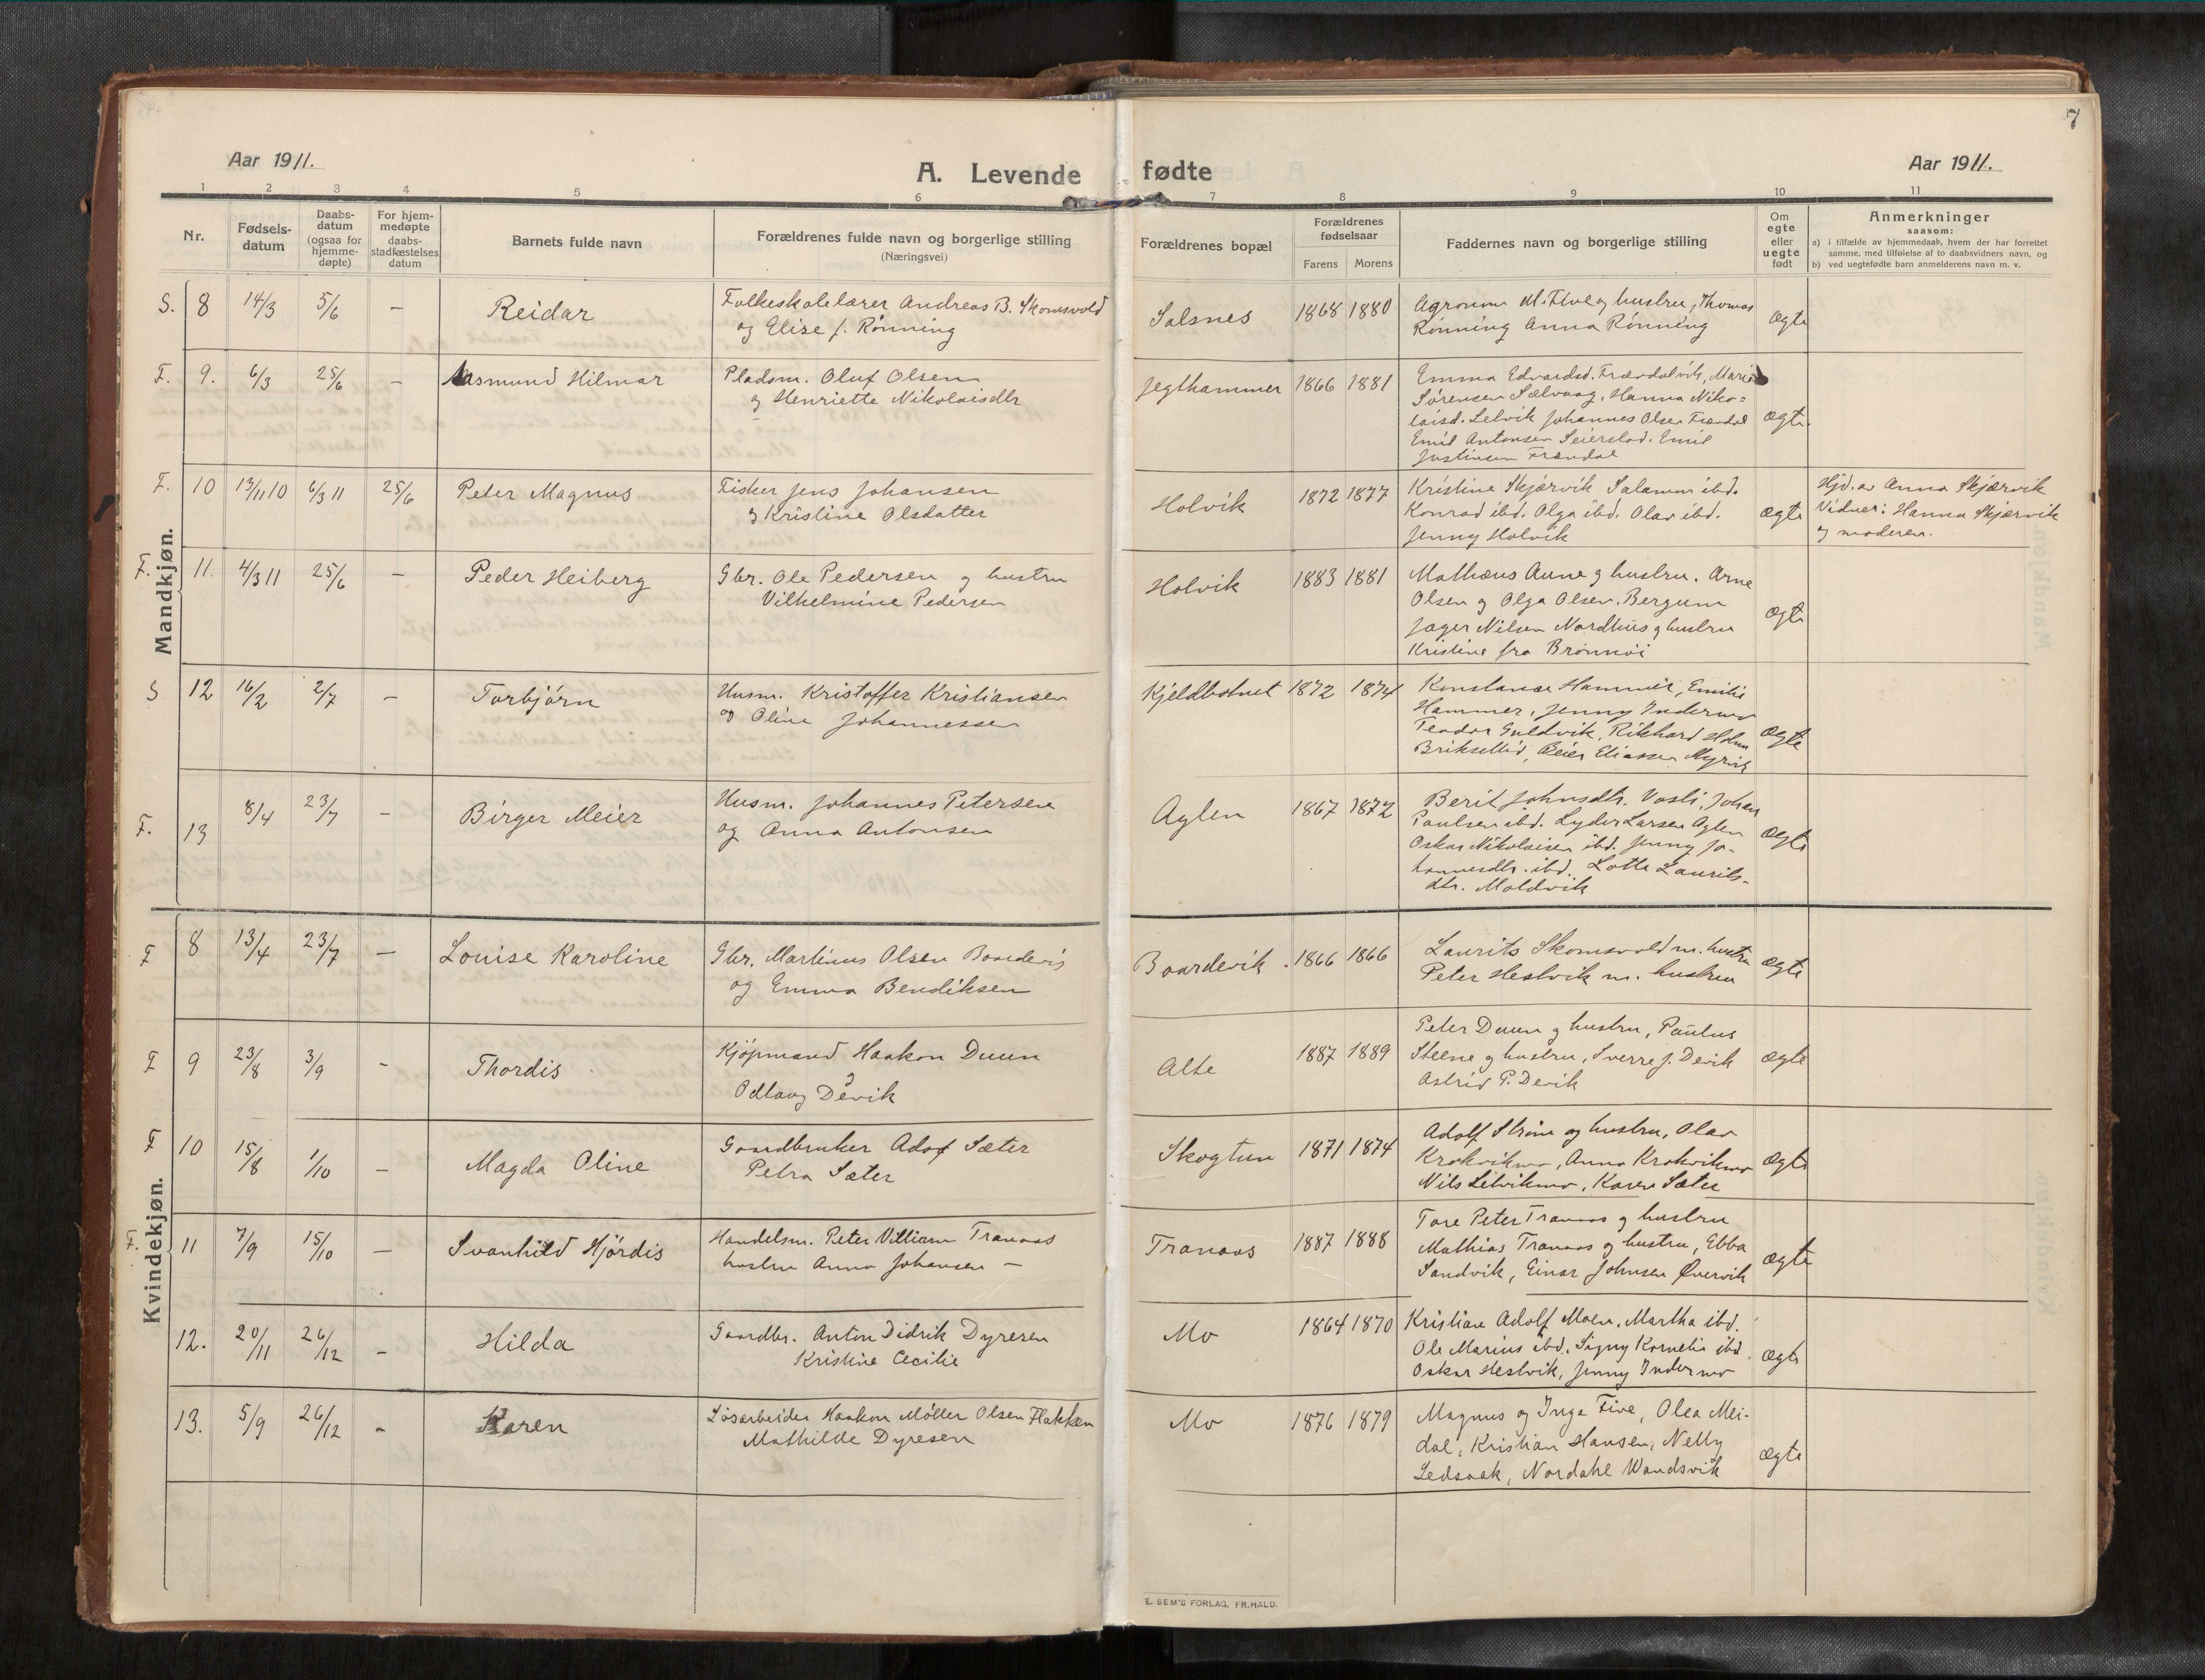 7
Aar 1911.
A. Levende fødte
Aar 1911.
1 2 3 4 5 6 7 8 9 10 11
Nr.
Fødsels-
datum
Daabs-
datum
(ogsaa for
hjemme-
døpte)
For hjem-
medøpte
daabs-
stadfæstelses
datum
Barnets fulde navn
Forældrenes fulde navn og borgerlige stilling
(Næringsvei)
Forældrenes bopæl
Forældrenes
fødselsaar
Farens Morens
Faddernes navn og borgerlige stilling
Om
egte
eller
uegte
født
Anmerkninger
saasom:
a) i tilfælde av hjemmedaab, hvem der har forrettet
samme, med tilføielse af to daabsvidners navn, og
b) ved uegtefødte barn anmelderens navn m. v.
Mandkjøn.
S. 8 14/3 5/6 - Reidar
Folkeskolelærer Andreas B. Skomsvold
og Elise f. Rønning
Salsnes 1868 1880
Agronom M. Five og hustru, Thomas
Rønning Anna Rønning
Ægte
F. 9. 6/3 25/6 - Aasmund Hilmar
Pladsm. Oluf Olsen
og Henriette Nikolaisdtr
Jegthammer 1866 1881
Emma Edvardsd. Frævdalvik, Marie
Sørensen Sælvaag, Hanna Niko=
laisd. Lelvik Johannes Olsen
Emil Antonsen Seierstad. Emil
Justinsen
Ægte
F. 10 13/11 10 6/3 11 25/6 Peter Magnus
Fisker Jens Johansen
og Kristine Olsdatter
Holvik 1872 1877
Kristine Skjærvik Salamon ibd.
Konrad ibd. Olga ibd. Olav ibd.
Jenny Holvik
Ægte
Hjd. av Anna Skjærvik
Vidner: Hanna Skjærvik
og moderen.
F. 11. 4/3 11 25/6 - Peder Heiberg
Gbr. Ole Pedersen og hustru
Vilhelmine Pedersen
Holvik 1883 1881
Mathæus Aune og hustru. Arne
Olsen og Olga Olsen. Bergum
Jæger Nilsen Nordhus og hustru
Kristine fra Brønnøi
Ægte
S 12 16/2 2/7 - Torbjørn
Husm. Kristoffer Kristiansen
og Oline Johannessen
Kjeldbotnet 1872 1874
Konstanse Hammer, Emilie
Hammer, Jenny Indermo
Teodor Guldvik, Rikhard Holm
Eliassen Myrvik
Ægte
F. 13 8/4 23/7 - Birger Meier
Husm. Johannes Petersen
og Anna Antonsen
Aglen 1867 1872
Berit Johnsdtr. Vasli, Johan
Paulsen ibd. Lyder Larsen Aglen
Oskar Nikolaisen ibd. Jenny Jo-
hannesdtr. ibd. Lotte Laurits-
dtr. Moldvik
Ægte
Kvindekjøn.
F 8 13/4 23/7 - Louise Karoline
Gbr. Martinus Olsen Baardevig
og Emma Bendiksen
Baardevik. 1866 1866
Laurits Skomsvold m. hustru
Peter Hestvik m. hustru
Ægte
F 9 23/8 3/9 - Thordis
Kjøpmand Haakon Duun
og
Odlaug Devik
Alte 1887 1889
Peter Duun og hustru, Paulus
Steene og hustru, Sverre J. Devik
Astrid P. Devik
Ægte
F 10 15/8 1/10 - Magda Oline
Gaardbruker Adof Sæter
Petra Sæter
Skogtun 1871 1874
Adolf Strøm og hustru, Olav
Krokvikmo, Anna Krokvikmo
Nils Lelvikmo, Karen Sæter
Ægte
F. 11 7/9 15/10 - Svanhild Hjørdis
Handelsm. Peter Villiam Tranaas
hustru Anna Johansen -
Tranaas 1887 1888
Tore Peter Tranaas og hustru
Mathias Tranaas og hustru, Ebba
Sandvik, Einar Johnsen Øvervik
Ægte
12. 20/11 26/12 - Hilda
Gaardbr. Anton Didrik Dyresen
Kristine Cecilie
Mo 1864 1870
Kristian Adolf Moen, Martha ibd.
Ole Marius ibd. Signy Kornelia ibd
Oskar Hestvik, Jenny Indermo
Ægte
13. 5/9 26/12 - Karen
Løsarbeider Haakon Møller Olsen Flakken
Mathilde Dyresen
Mo 1876 1879
Magnus og Inga Five, Olea Mei-
dal, Kristian Hansen, Nelly
Ledsaak, Nordahl Wandsvik
Ægte
E. SEM'S FORLAG, FR.HALD.